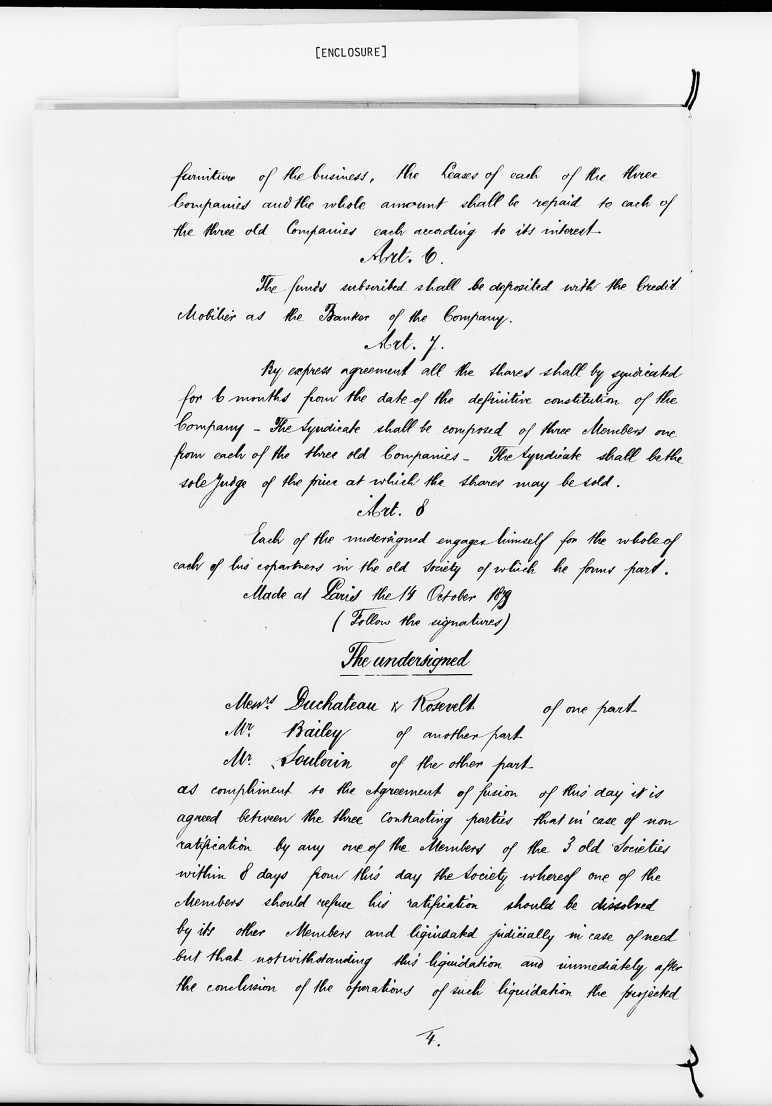 [ENCLOSURE]
furniture of the business, the Leases of each of the three
Companies and the whole amount shall be repaid to each of
the three old Companies each according to its interest
Art. 6.
The funds subscribed shall be deposited with the Credit
Mobilier as the Banker of the Company.
Art. 7.
By express agreement all the shares shall by syndicated
for 6 months from the date of the definitive constitution of the
Company – The Syndicate shall be composed of three Members one
from each of the three old Companies – The Syndicate shall be the
sole Judge of the price at which the shares may be sold.
Art. 8
Each of the undersigned engages himself for the whole of
each of his copartners in the old Society of which he forms part.
Made at Paris the 14 October 1879
(Follow the signatures)
The undersigned
Messrs Duchateau & Rosevelt of one part
Mr. Bailey of another part
Mr. Soulerin of the other part
as compliment to the Agreement of fusion of this day it is
agreed between the three Contracting parties that in case of non
ratification by any one of the Members of the 3 old Societies
within 8 days from this day the Society whereof one of the
Members should refuse his ratification should be dissolved
by its other Members and liquidated judicially in case of need
but that notwithstanding this liquidation and immediately after
the conclusion of the operations of such liquidation the projected
4.